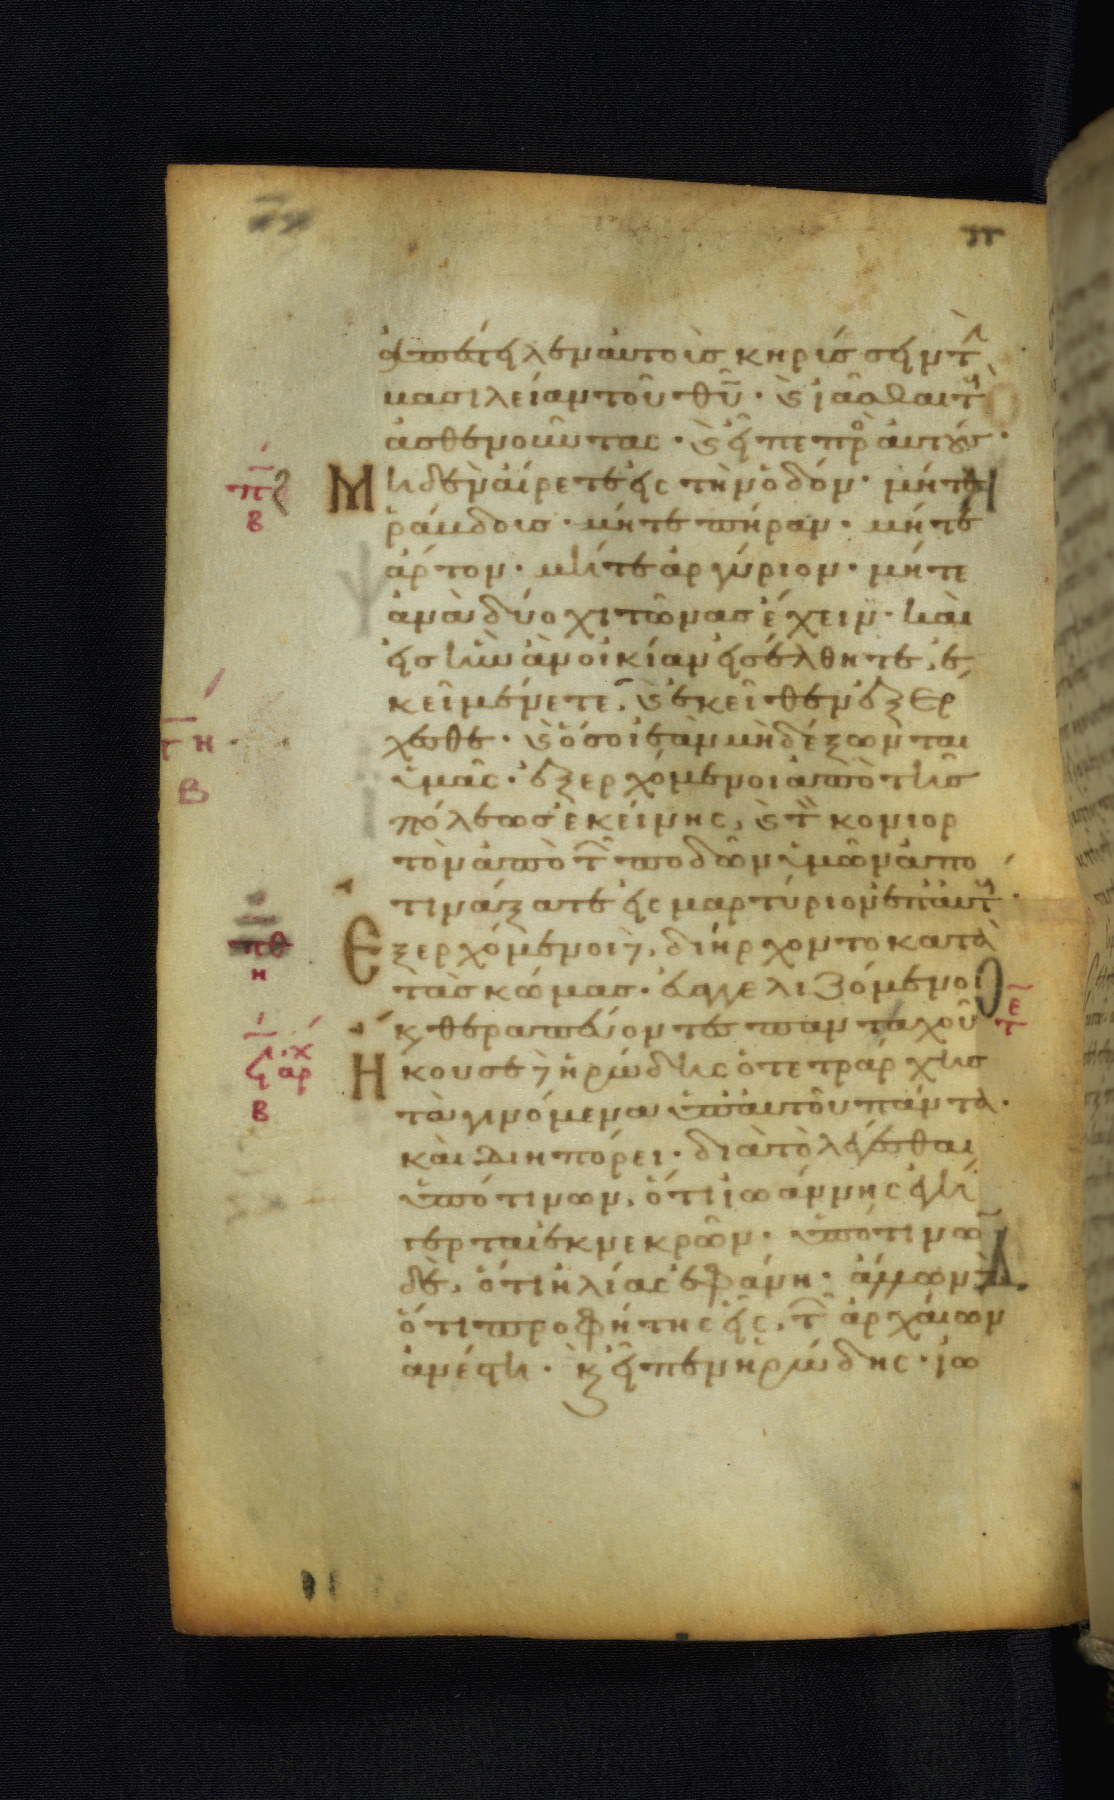 ἀπέστειλεν αὐτοὺς κηρύσσειν τὴν
βασιλείαν τοῦ θυ̅· καὶ ἰᾶσθαι τοὺς
ἀσθενοῦντας· καὶ εἶπε πρὸς αὐτούς·
Μηδὲν αἴρετε εἰς τὴν ὁδόν· μήτε
ῥάβδους· μήτε πήραν· μήτε
ἄρτον· μήτε ἀργύριον· μήτε
ἀνὰ δύο χιτῶνας ἔχειν· καὶ
εἰς ἣν ἂν οἰκίαν εἰσέλθητε, ἐ
κεῖ μένετε, καὶ ἐκεῖθεν ἐξέρ
χεσθε· καὶ ὅσοι ἐὰν μὴ δέξωνται
ὑμᾶς· ἐξερχόμενοι ἀπὸ τῆς
πόλεως ἐκείνης, καὶ τὸν κονιορ
τὸν ἀπὸ τῶν ποδῶν ὑμῶν ἀπο
τινάξατε εἰς μαρτύριον ἐπ' αὐτούς·
Ἐξερχόμενοι δὲ, διήρχοντο κατὰ
τὰς κώμας· εὐαγγελιζόμενοι
καὶ θεραπεύοντες πανταχοῦ
Ἤκουσε δὲ ἡρώδης ὁ τετράρχης
τὰ γινόμενα ὑπ' αὐτοῦ πάντα·
καὶ διηπόρει· διὰ τὸ λέγεσθαι
ὑπό τινων, ὅτι ἰωάννης ἐγή
γερται ἐκ νεκρῶν· ὑπό τινων
δὲ, ὅτι ηλίας ἐφάνη· ἄλλων δὲ
ὅτι προφήτης εἷς, τῶν ἀρχαίων
ἀνέστη· καὶ εἶπεν ἡρώδης· ἰω